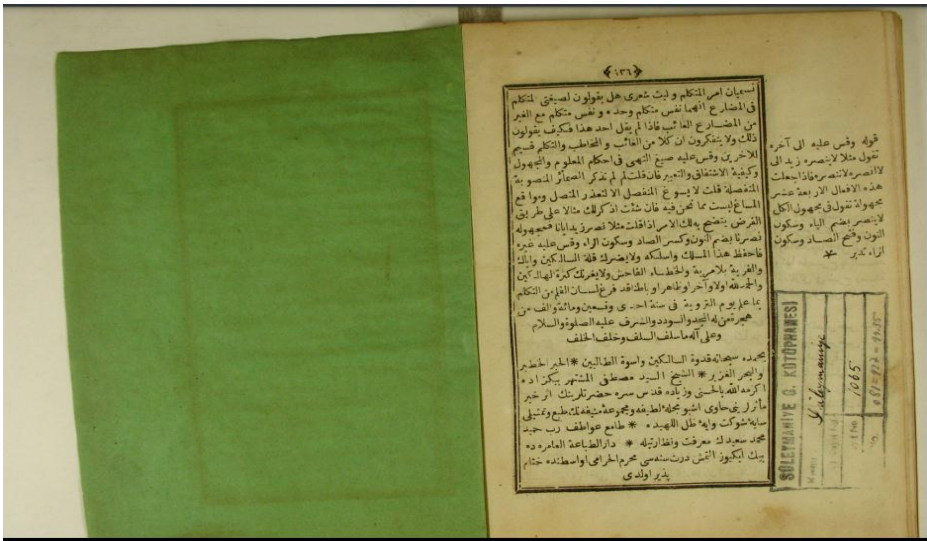 ﴿١٣٦﴾
نسميان امر المتكلم وليت شعرى هل يقولون لصيغتى المتكلم
فى المضارع انهما نفس متكلم وحده ونفس متكلم مع الغير
من المضارع الغائب فاذا لم يقل احد هذا فكيف يقولون
ذلك ولا يتفكرون ان كلا من الغائب والمخاطب والمتكلم قسيم
للاخرين وقس عليه صيغ النهى فى احكام المعلوم والمجهول
وكيفية الاشتقاق والتعبير فان قلت لم لم تذكر الضمائر المنصوبة
المنفصلة قلت لا يسوغ المنفصل الا لتعذر المتصل ومواقع
المساغ ليست مما نحن فيه فان شئت اذكر لك مثالا على طريق
الفرض يتضح به لك الامر اذا قلت مثلا نصر زيد ايانا فمجهوله
نصرنا بضم النون وكسر الصاد وسكون الراء وقس عليه غيره
فاحفظ هذا المسلك واسلكه ولا يضرك قلة السالكين واياك
والفرية بلا مرية والخطاء الفاحش ولا يغرنك كثرة الهالكين
والحمد لله اولا وآخرا وظاهرا وباطنا قد فرغ لسان القلم من التكلم
بما علم يوم التروية فى سنة احدى وتسعين ومائة والف من
هجرة من له المجد والسودد والشرف عليه الصلوة والسلام
وعلى آله ما سلف السلف وخلف الخلف
بحمده سبحانه قدوة السالكين واسوة الطالبين * الحبر الخطير
والبحر الغزير * الشيخ السيد مصطفى المشتهر ببكزاده
اكرمه الله بالحسنى وزياده قدس سره حضرتلرينك اثر خير
مأثرلرينى حاوى اشبو مجلۀ لطيفه ومجموعۀ منيفه نك طبع وتمثيلى
سايۀ شوكت وايۀ ظل اللهيده * طامع عواطف رب حميد
محمد سعيدك معرفت ونظارتيله * دار الطباعة العامره ده
بيك ايكيوز التمش درت سنه سى محرم الحرامى اواسطنده ختام
پذير اولدى
قوله وقس عليه الى آخره
تقول مثلا لا ينصره زيد الى
لا انصره لا ننصره فاذا جعلت
هذه الافعال الاربعة عشر
مجهولة تقول فى مجهول الكل
لا ينصر بضم الياء وسكون
النون وفتح الصاد وسكون
الراء تدبر *
SÜLEYMANİYE G. KÜTÜPHANESİ
Süleymaniye
1065